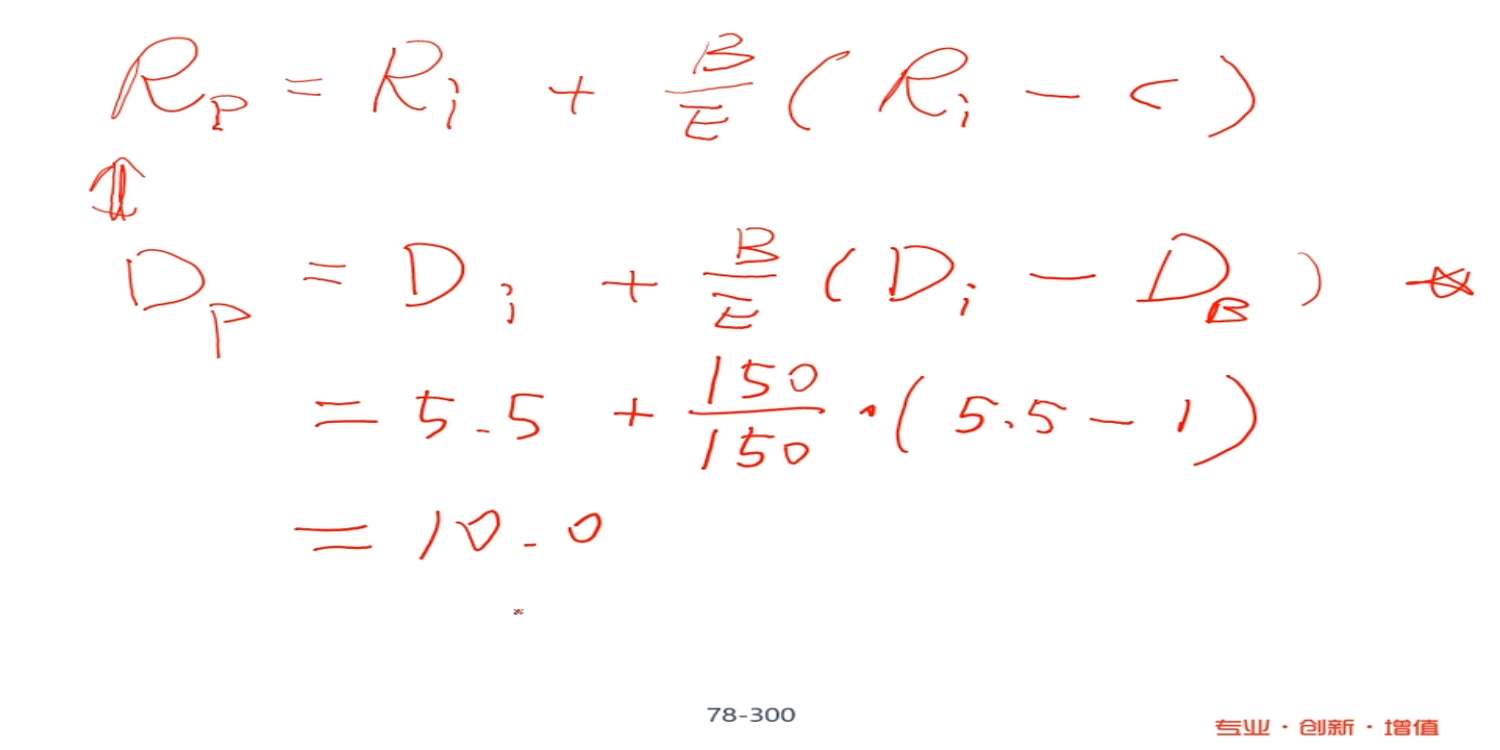 R_P = R_i + B/E ( R_i - c )
⇕
D_P = D_i + B/E ( D_i - D_B ) ☆
= 5.5 + 150/150 · ( 5.5 - 1 )
= 10.0
*
78-300
专业 · 创新 · 增值